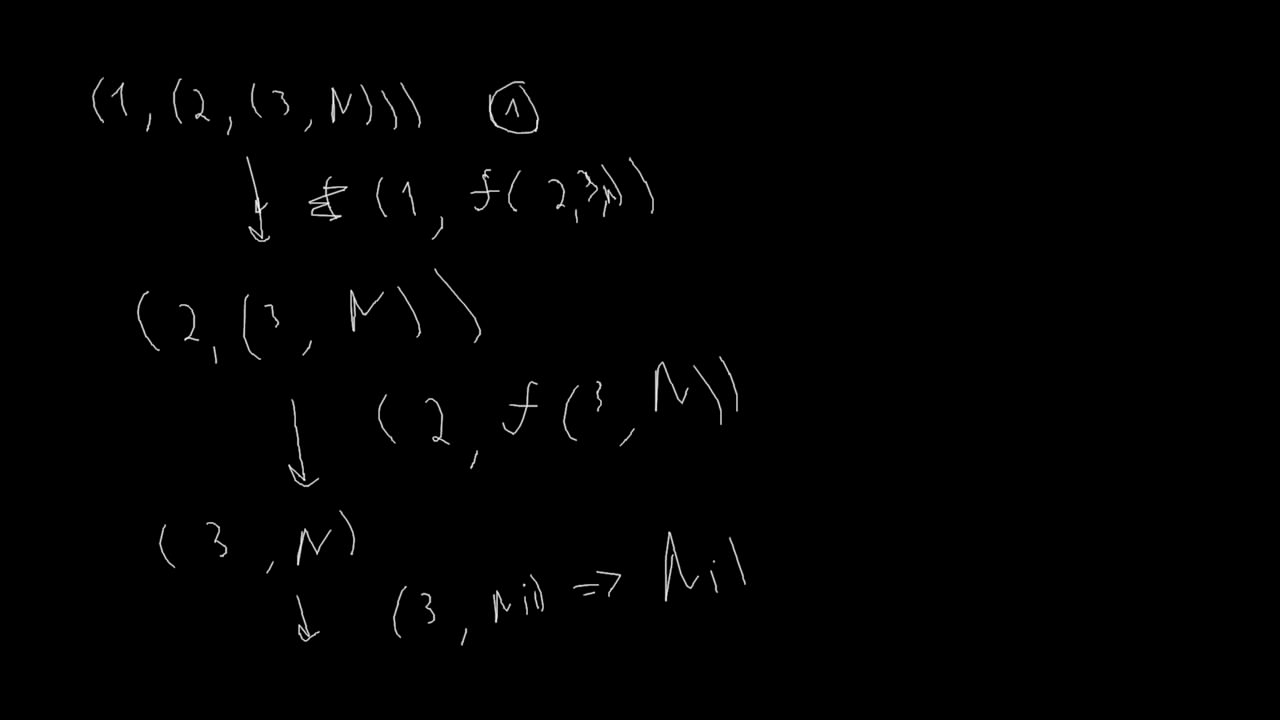 (1, (2, (3, N))) ①
(1, f(2,3,N))
(2, (3, N))
(2, f(3, N))
(3, N)
(3, Nil) => Nil